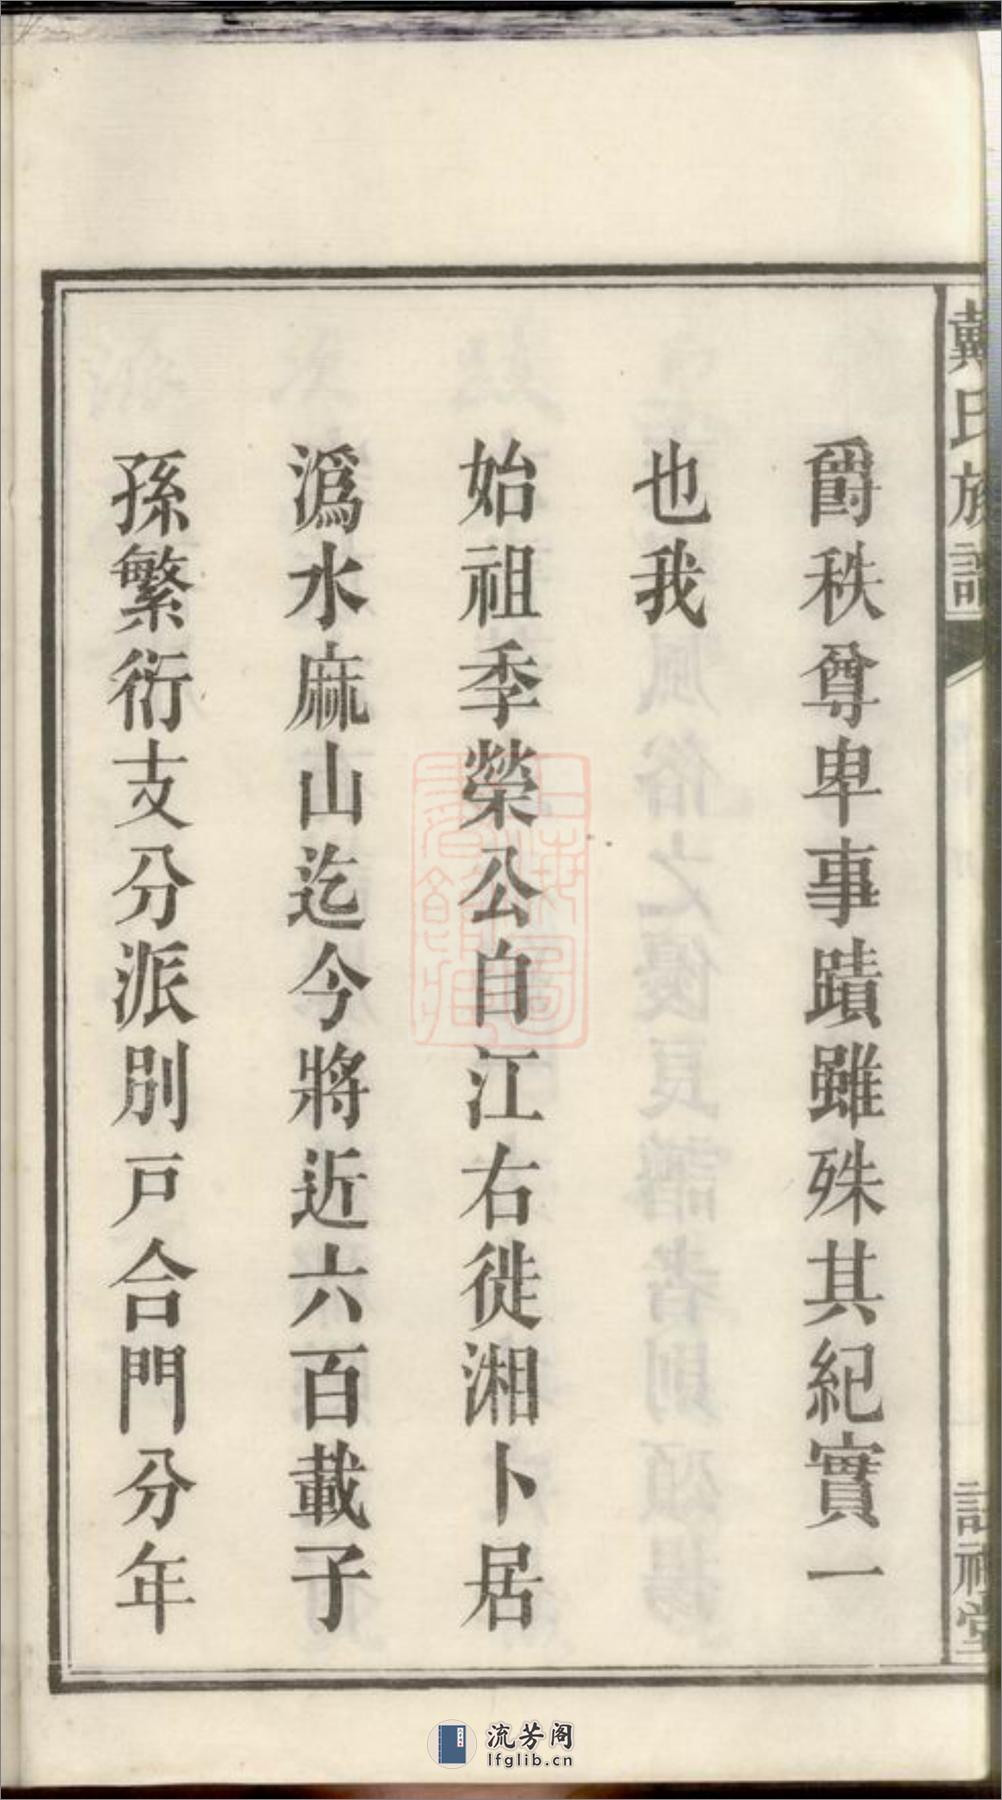 戴氏族譜
爵秩尊卑事蹟雖殊其紀實一
也我
始祖季榮公自江右徙湘卜居
溈水麻山迄今將近六百載子
孫繁衍支分派別戸合門分年
堂
流芳阁
lfglib.cn